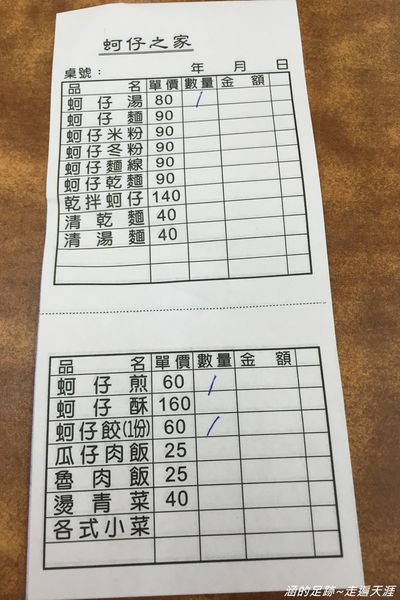 蚵仔之家
桌號： 年 月 日
品名 單價 數量 金額
蚵仔湯 80 /
蚵仔麵 90
蚵仔米粉 90
蚵仔冬粉 90
蚵仔麵線 90
蚵仔乾麵 90
乾拌蚵仔 140
清乾麵 40
清湯麵 40
品名 單價 數量 金額
蚵仔煎 60 /
蚵仔酥 160
蚵仔餃(1份) 60 /
瓜仔肉飯 25
魯肉飯 25
燙青菜 40
各式小菜
涵的足跡~走遍天涯